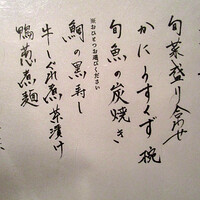 旬菜盛り合わせ
かにうすくず椀
旬魚の炭焼き
※おひとつお選びください
鯛の黒寿し
牛しぐれ煮茶漬け
鴨葱煮麺